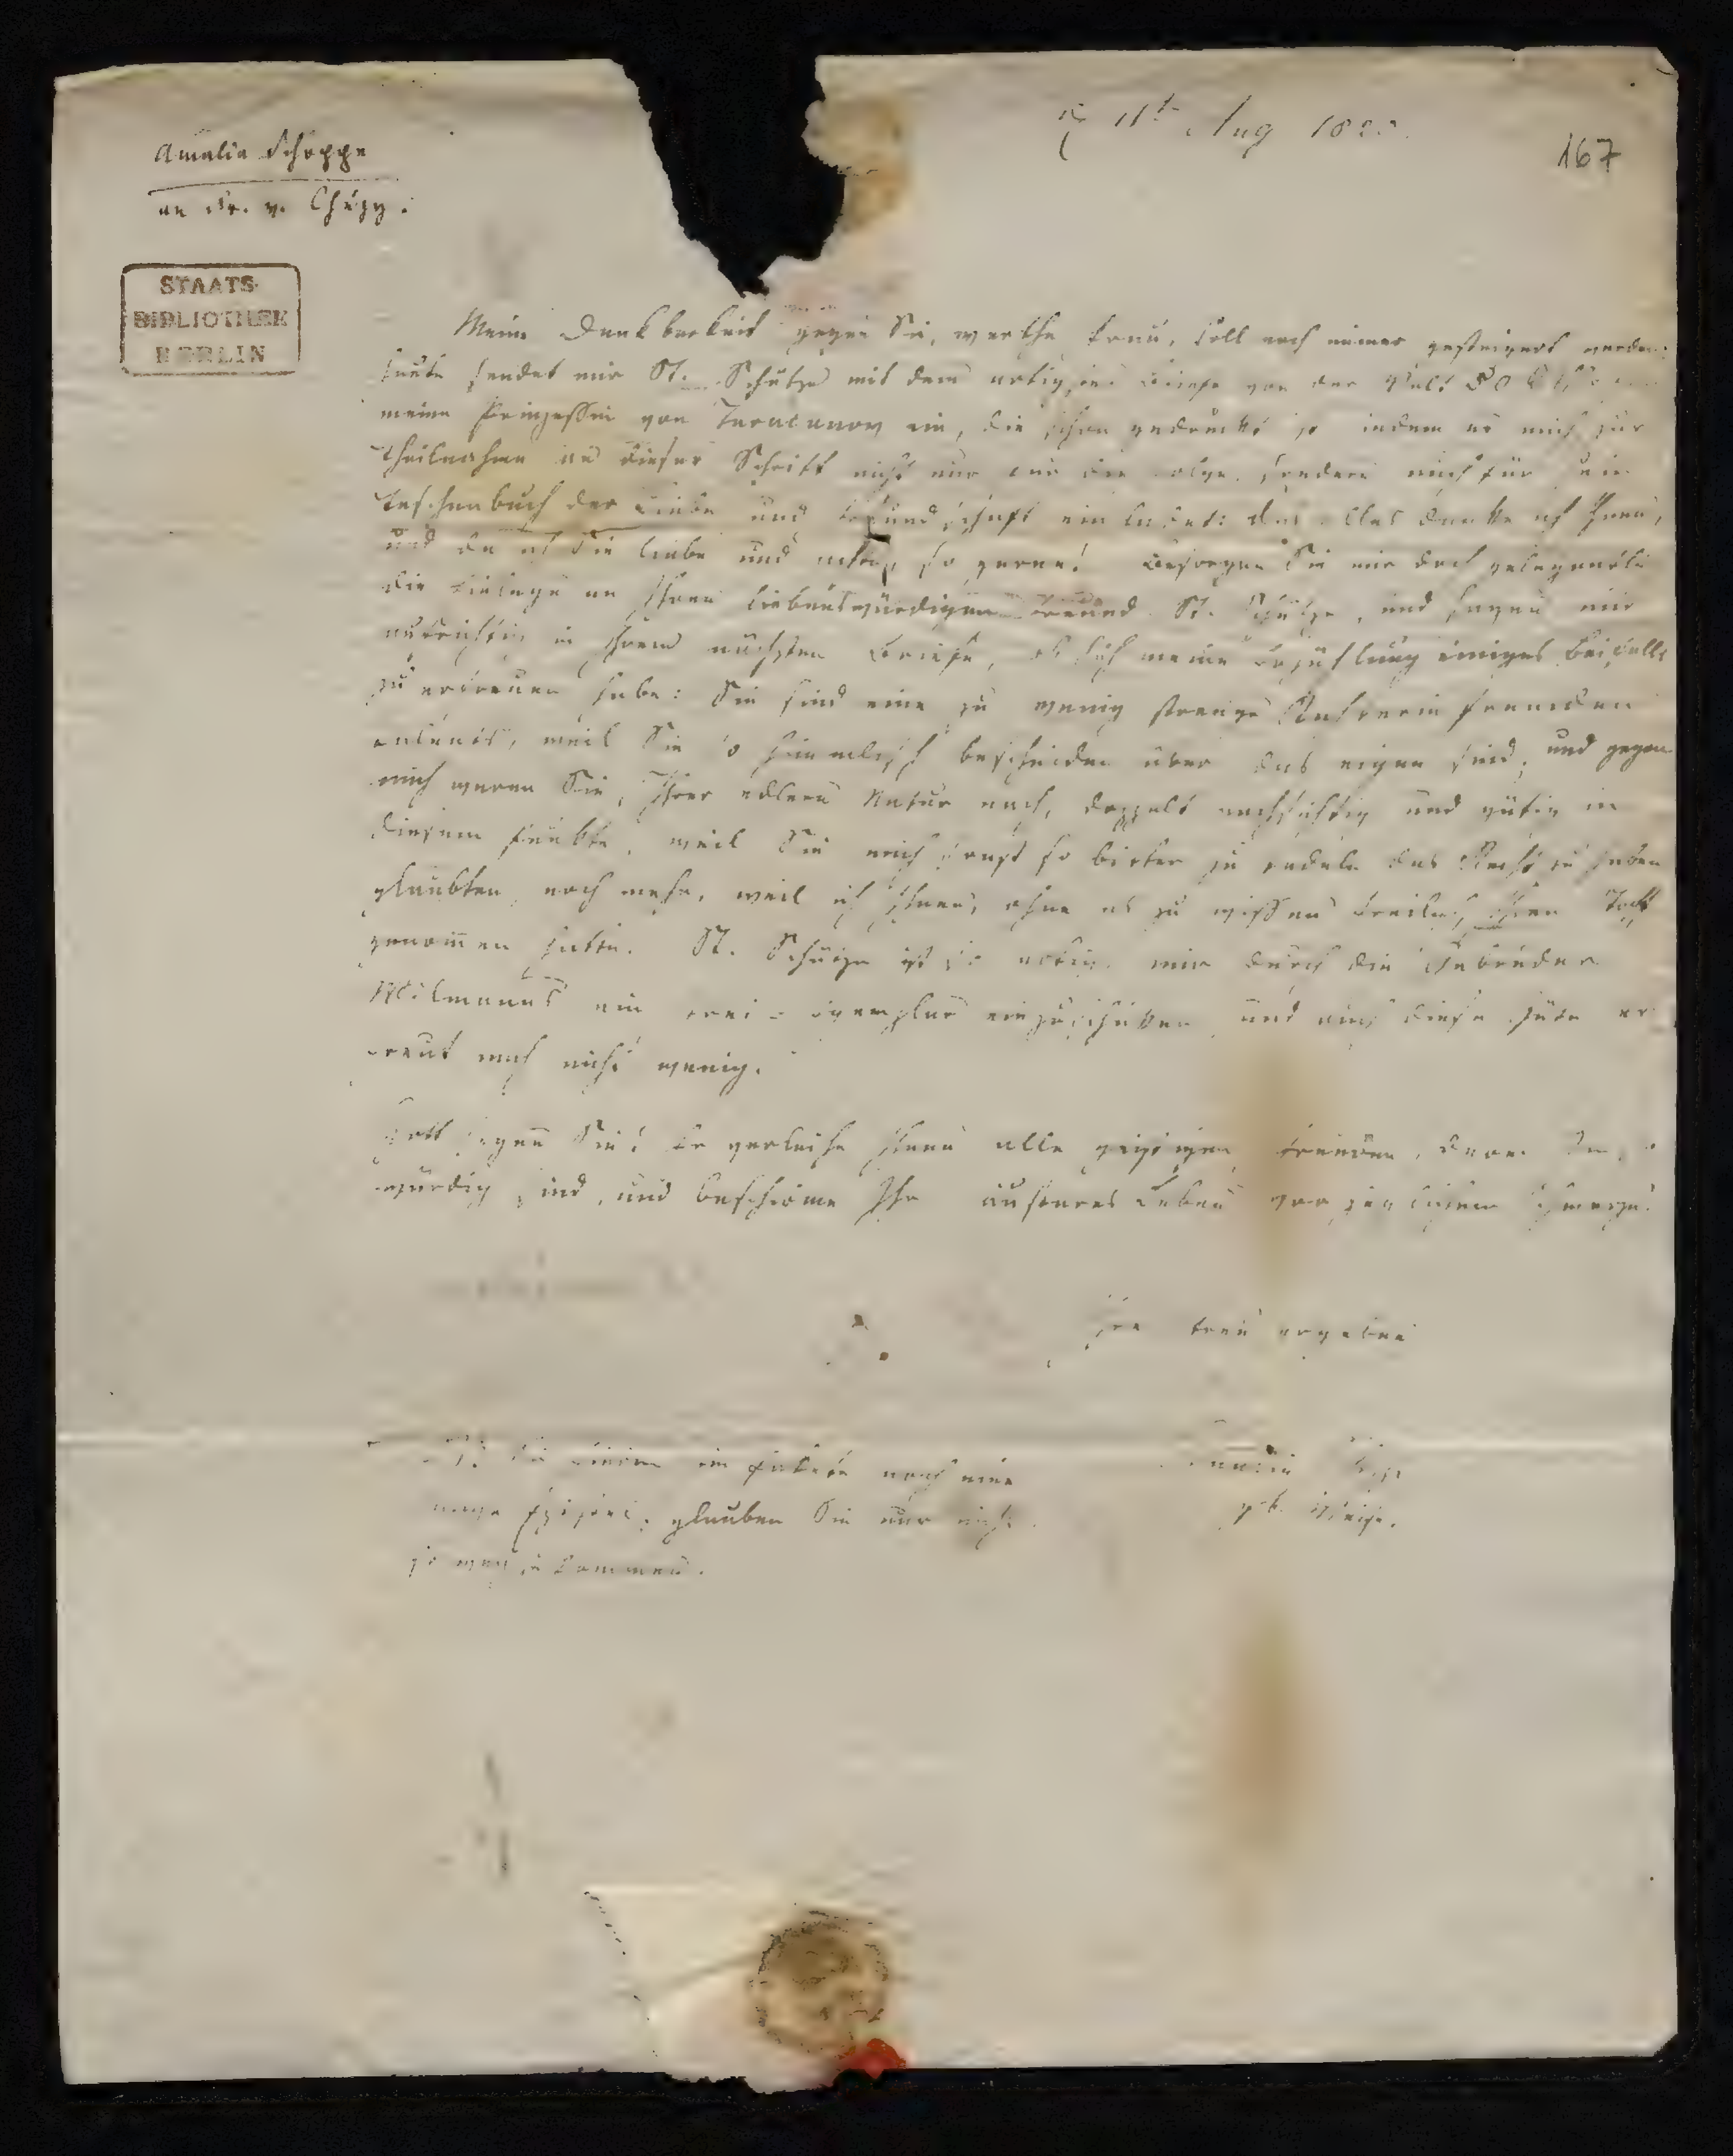 Amalia Schoppe
an Fr. v. Chézy.
11t Aug 182
167
STAATS-
BIBLIOTHEK
BERLIN
Meine Dankbarkeit gegen Sie, werthe Frau, soll noch immer gesteigert werden:
heute sendet mir St. Schütze mit dem artigsten Briefe von der Welt
meine Prinzessin von Taracanow ein, die schon gedruckt ist indem er mich zur
Theilnahme an dieser Schrift nicht nur für die Folge, sondern auch für sein
Taschenbuch der Liebe und Freundschaft einladet: das alles danke ich Ihnen,
und da ich Sie liebe und achte, so gerne! Besorgen Sie mir doch gelegentlich
die Einlage an Ihren liebenswürdigen Freund St. Schütze, und sagen mir
aufrichtig in Ihrem nächsten Briefe, ob sich meine Erzählung einiges Beifalls
zu erfreuen habe: Sie sind eine zu wenig strenge Richterin fremden
Talents, weil Sie so himmlisch bescheiden über das eigne sind, und gegen
mich waren Sie, Ihrer edlern Natur nach, doppelt nachsichtig und gütig in
diesem Punkte, weil Sie mich sonst so bitter zu tadeln das Recht zu haben
glaubten, noch mehr, weil ich Ihnen, ohne es zu wissen freilich, Ihren Stoff
genommen hatte. St. Schütze ist so artig, mir durch die Gebrüder
Wilmanns ein Frei-Exemplar einzuschicken und auch diese Güte er-
freut mich nicht wenig.
Gott segne Sie! Er verleihe Ihnen alle geistigen Freuden, deren Sie so
würdig sind, und beschirme Ihr äusseres Leben vor jeglichem Schmerze!
Ihre treu ergebne
Amalia Schoppe
geb. Weise.
im Herbste noch eine
glauben Sie nur nicht
so weg zu kommen.